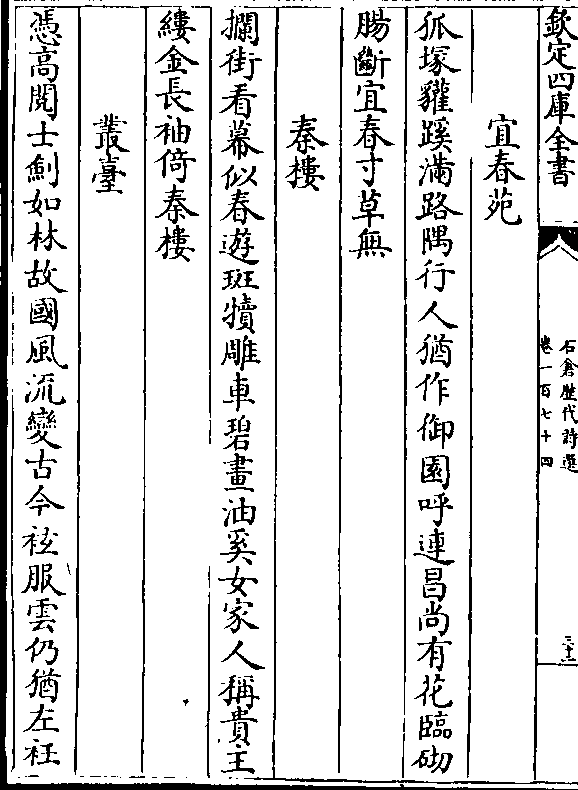 欽定四庫全書
石倉歷代詩選
卷一百七十四
三十三
宜春苑
狐塚貛蹊滿路隅行人猶作御園呼連昌尚有花臨砌
腸斷宜春寸草無
秦樓
攔街看幕似春遊斑犢雕車碧畫油奚女家人稱貴主
縷金長袖倚秦樓
叢臺
憑高閱士劍如林故國風流變古今袨服雲仍猶左衽